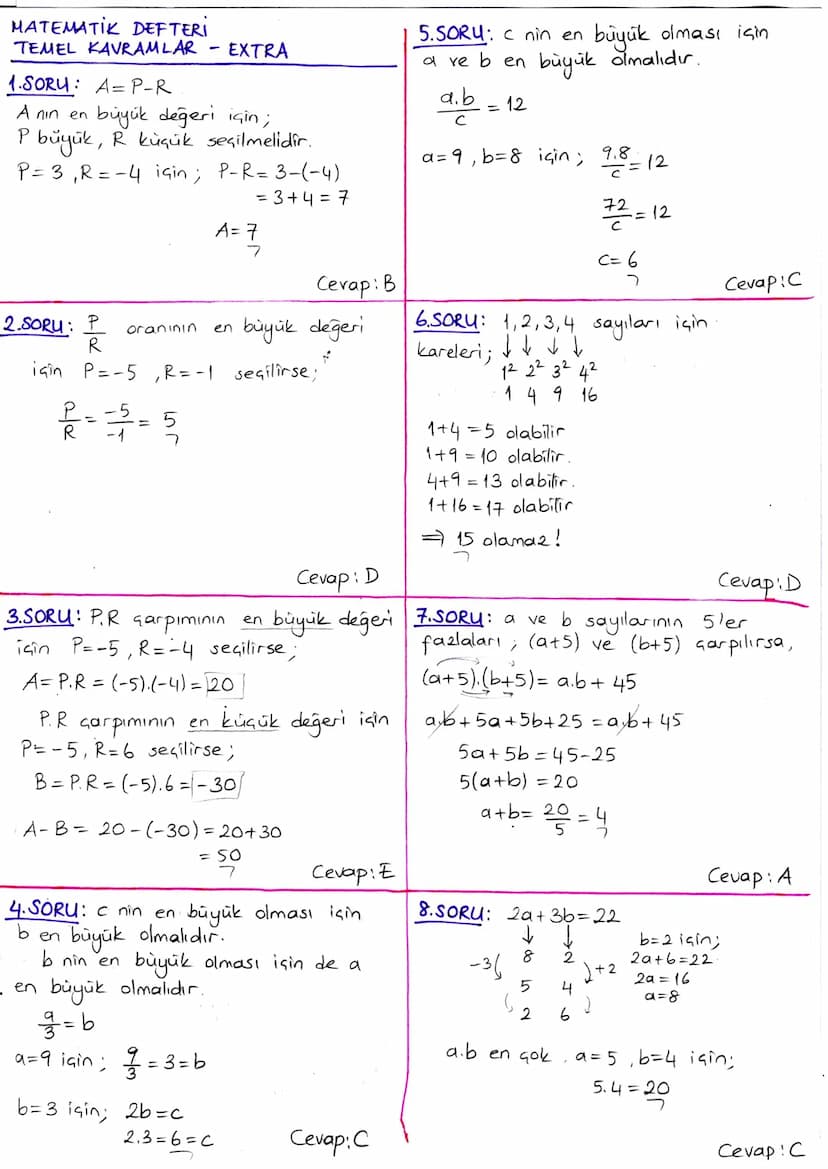 MATEMATİK DEFTERİ
TEMEL KAVRAMLAR - EXTRA
1.SORU: A=P-R
A nın en büyük değeri için;
P büyük, R küçük seçilmelidir.
P=3, R=-4 için; P-R=3-(-4)
=3+4=7
A=7
Cevap:B
2.SORU: P/R oranının en büyük değeri
için P=-5, R=-1 seçilirse;
P/R = -5/-1 = 5
Cevap:D
3.SORU: P.R çarpımının en büyük değeri
için P=-5, R=-4 seçilirse;
A=P.R=(-5).(-4)=20
P.R çarpımının en küçük değeri için
P=-5, R=6 seçilirse;
B=P.R=(-5).6=-30
A-B= 20-(-30)=20+30
=50
Cevap:E
4.SORU: c nin en büyük olması için
b en büyük olmalıdır.
b nin en büyük olması için de a
en büyük olmalıdır.
a/3=b
a=9 için; 9/3=3=b
b=3 için; 2b=c
2.3=6=c
Cevap:C
5.SORU: c nin en büyük olması için
a ve b en büyük olmalıdır.
a.b/c=12
a=9, b=8 için; 9.8/c=12
72/c=12
c=6
Cevap:C
6.SORU: 1,2,3,4 sayıları için
kareleri; ↓ ↓ ↓ ↓
1² 2² 3² 4²
1 4 9 16
1+4=5 olabilir
1+9=10 olabilir.
4+9=13 olabilir.
1+16=17 olabilir
⇒ 15 olamaz!
Cevap:D
7.SORU: a ve b sayılarının 5'er
fazlaları; (a+5) ve (b+5) çarpılırsa,
(a+5).(b+5)=a.b+45
a.b+5a+5b+25=a.b+45
5a+5b=45-25
5(a+b)=20
a+b=20/5=4
Cevap:A
8.SORU: 2a+3b=22
↓ ↓ b=2 için;
-3 8 2 +2 2a+6=22
2a=16
5 4 a=8
2 6
a.b en çok a=5, b=4 için;
5.4=20
Cevap:C